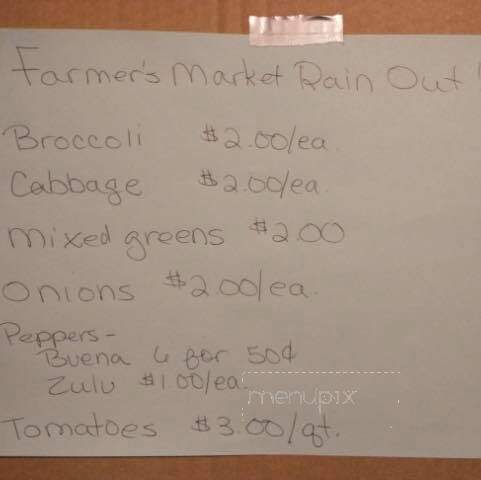 Farmer's Market Rain Out!
Broccoli $2.00/ea
Cabbage $2.00/ea
mixed greens $2.00
Onions $2.00/ea.
Peppers-
Buena 6 for 50¢
Zulu $1.00/ea.
menupix
Tomatoes $3.00/qt.